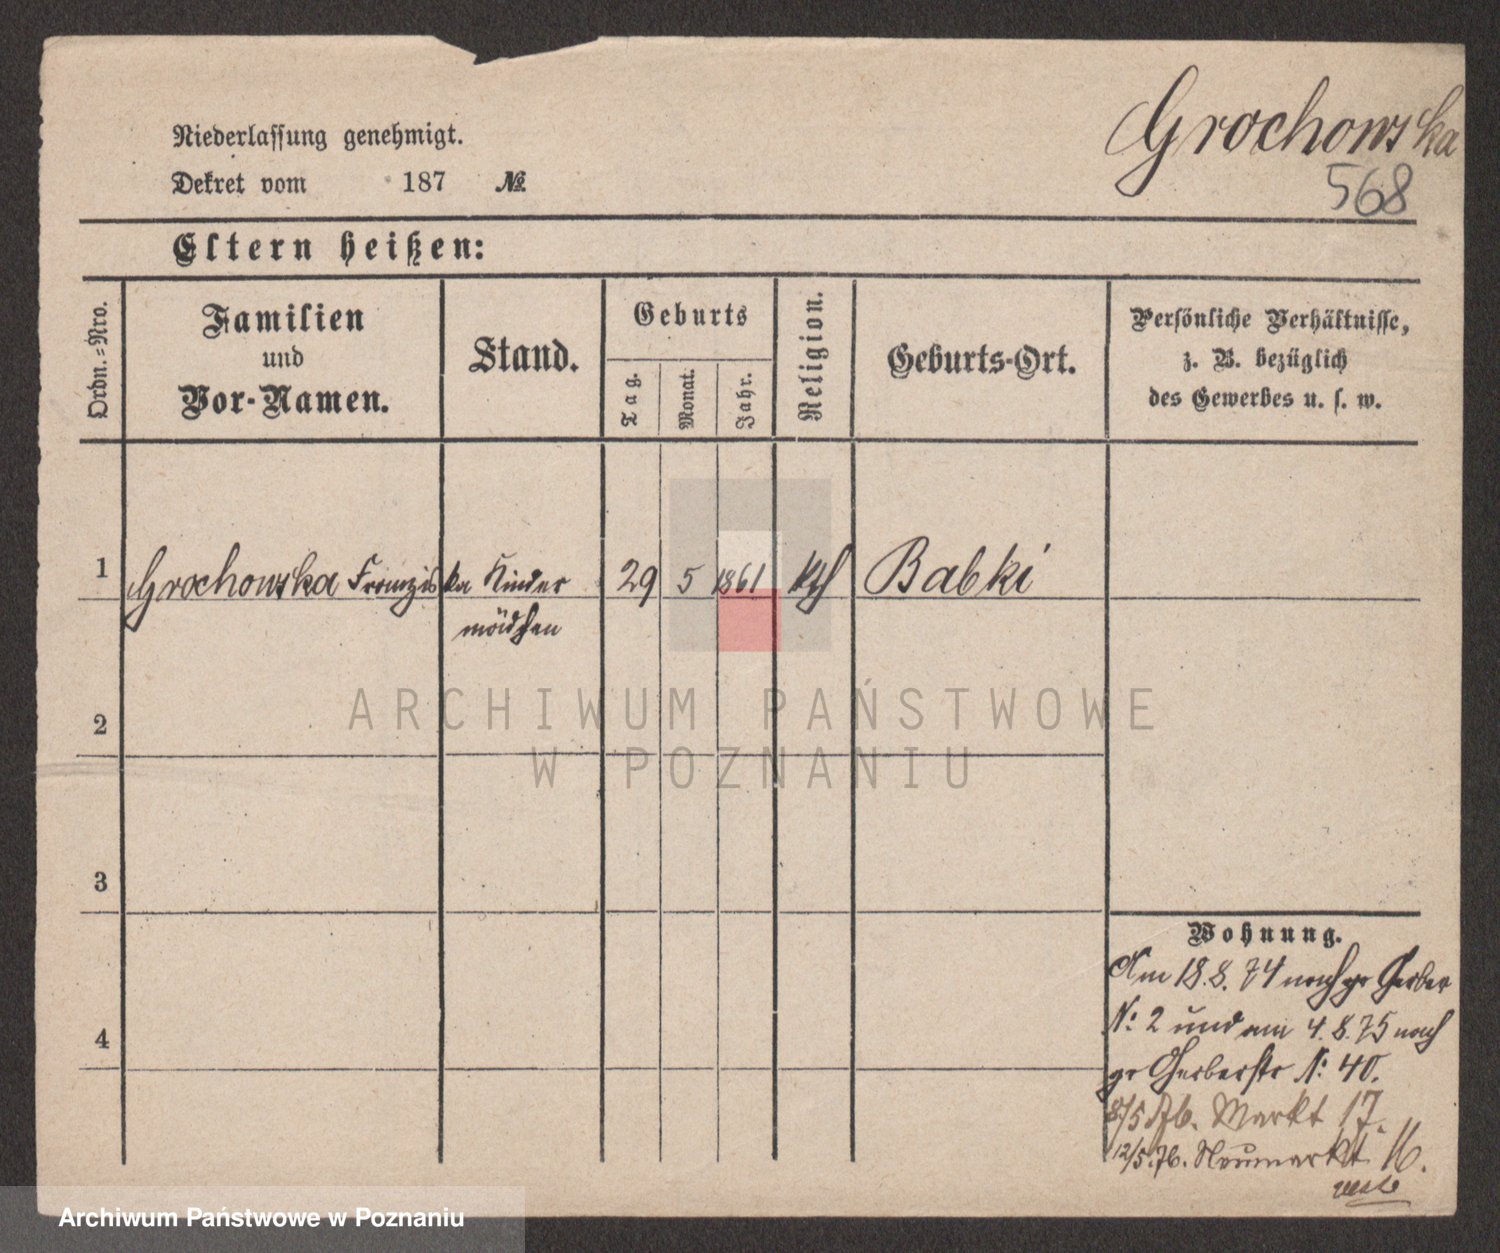 Grochowska
568
Niederlassung genehmigt.
Dekret vom 187 №
Eltern heißen:
Ordn.=Nro.
Familien
und
Vor-Namen.
Stand.
Geburts
Tag.
Monat.
Jahr.
Religion.
Geburts-Ort.
Persönliche Verhältnisse,
z. B. bezüglich
des Gewerbes u. s. w.
1 Grochowska Franziska Kinder 29 5 1861 kth Babki
mädchen
2
3
4
Wohnung.
Am 18.8.74 nach gr Gerber
N: 2 und am 4.8.75 nach
gr Gerberstr N: 40.
8/5.76. Markt 17.
12/5.76. Neumarkt 16.
ARCHIWUM PAŃSTWOWE
W POZNANIU
Archiwum Państwowe w Poznaniu